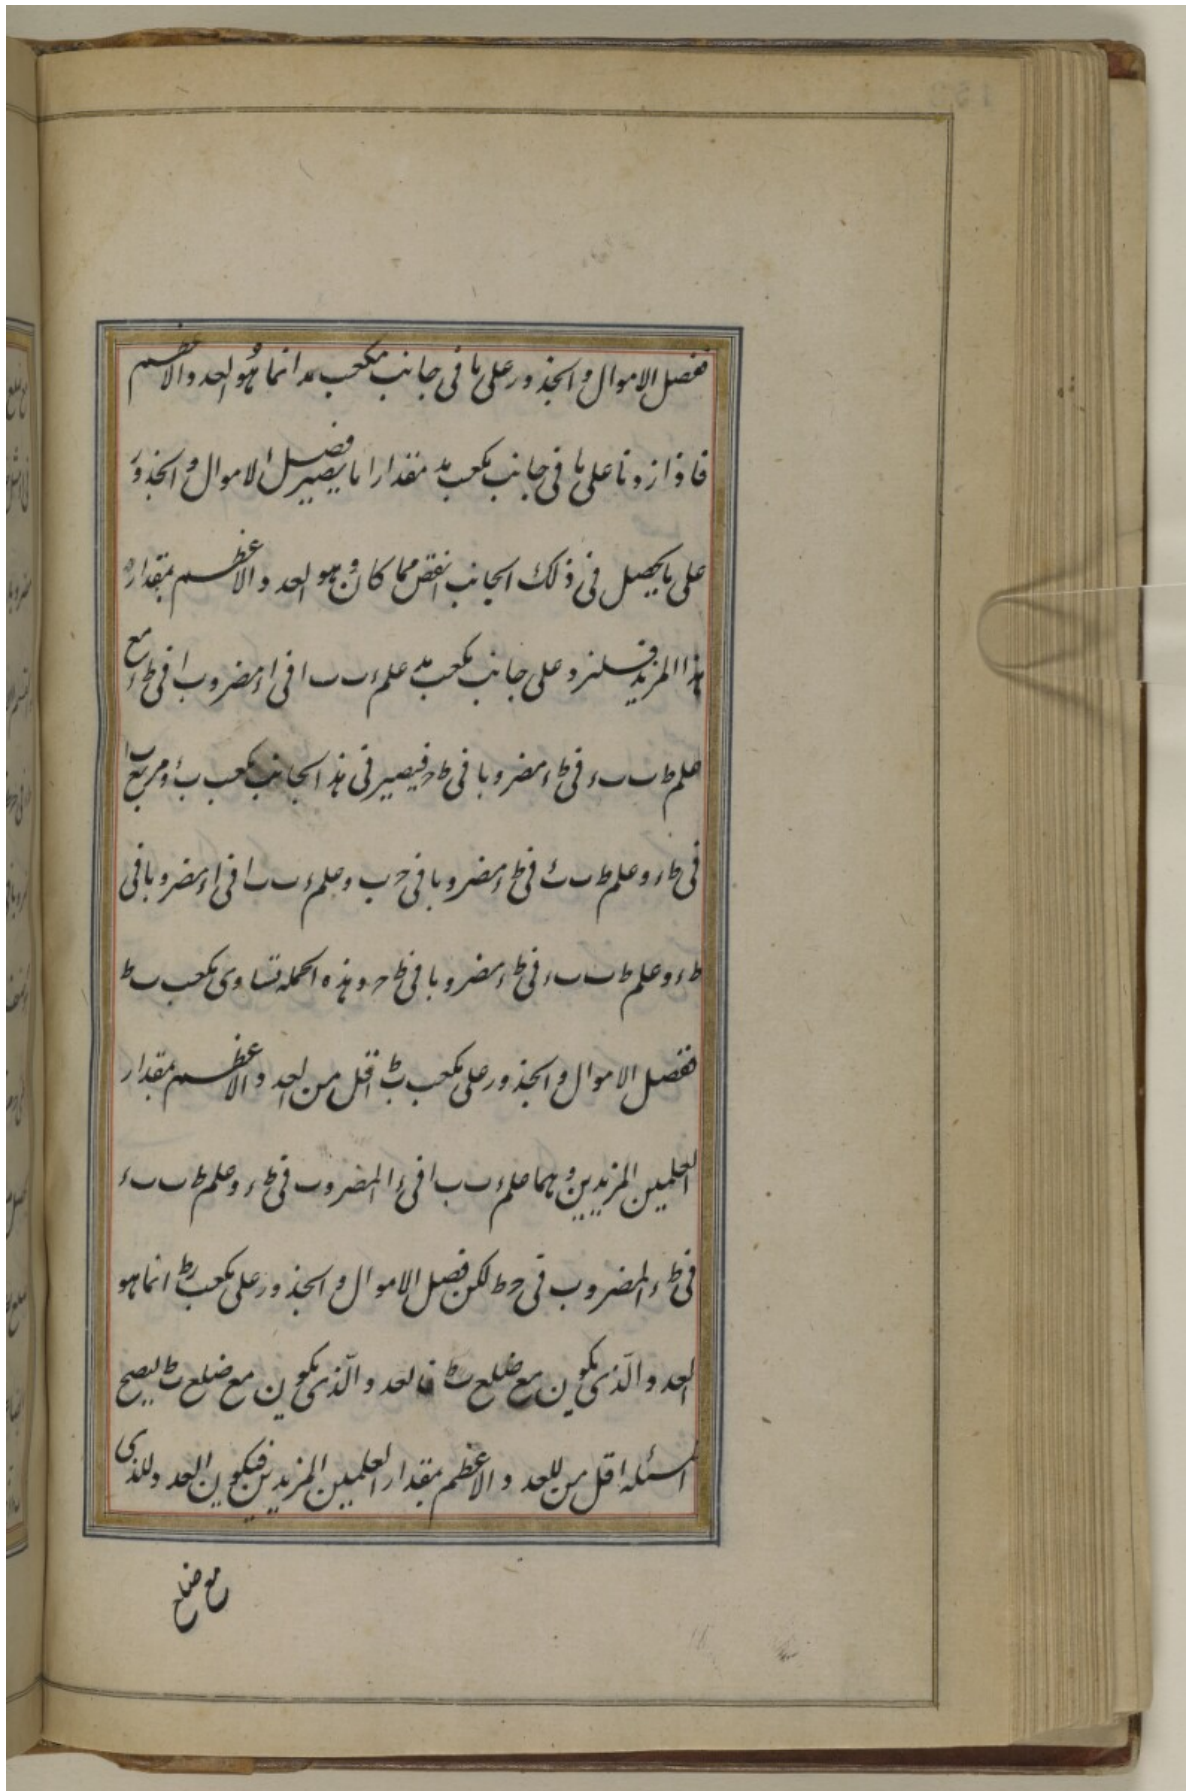 ففضل الاموال والجذور على ما فى جانب مكعب بد انما هو العدد الاعظم
فاذا زدنا على ما فى جانب مكعب بد مقدارا ما يصير فضل الاموال والجذور
على ما يحصل فى ذلك الجانب انقص مما كان وهو العدد الاعظم بمقدار
هذا المزيد فلنزد على جانب مكعب بد علم ء ب ب ا فى ا ء مضروبا فى ط ء مع
علم ط ب ب ء فى ط ء مضروبا فى ط ح فيصير فى هذا الجانب مكعب ب ء ومربع ب ا
فى ط ء وعلم ط ب ب ء فى ط ء مضروبا فى ح ب وعلم ء ب ب ا فى ا ء مضروبا فى
ط ء وعلم ط ب ب ء فى ط ء مضروبا فى ط ح وهذه الجمله تساوى مكعب ب ط
ففضل الاموال والجذور على مكعب ب ط اقل من العدد الاعظم بمقدار
العلمين المزيدين وهما علم ء ب ب ا فى ء ا المضروب فى ط ء وعلم ط ب ب ء
فى ط ء المضروب فى ح ط لكن فضل الاموال والجذور على مكعب ب ط انما هو
العدد الذى يكون مع ضلع ب ط فالعدد الذى يكون مع ضلع ب ط ليصح
المسئله اقل من للعدد الاعظم بمقدار العلمين المزيدين فيكون العدد للذى
مع ضلع